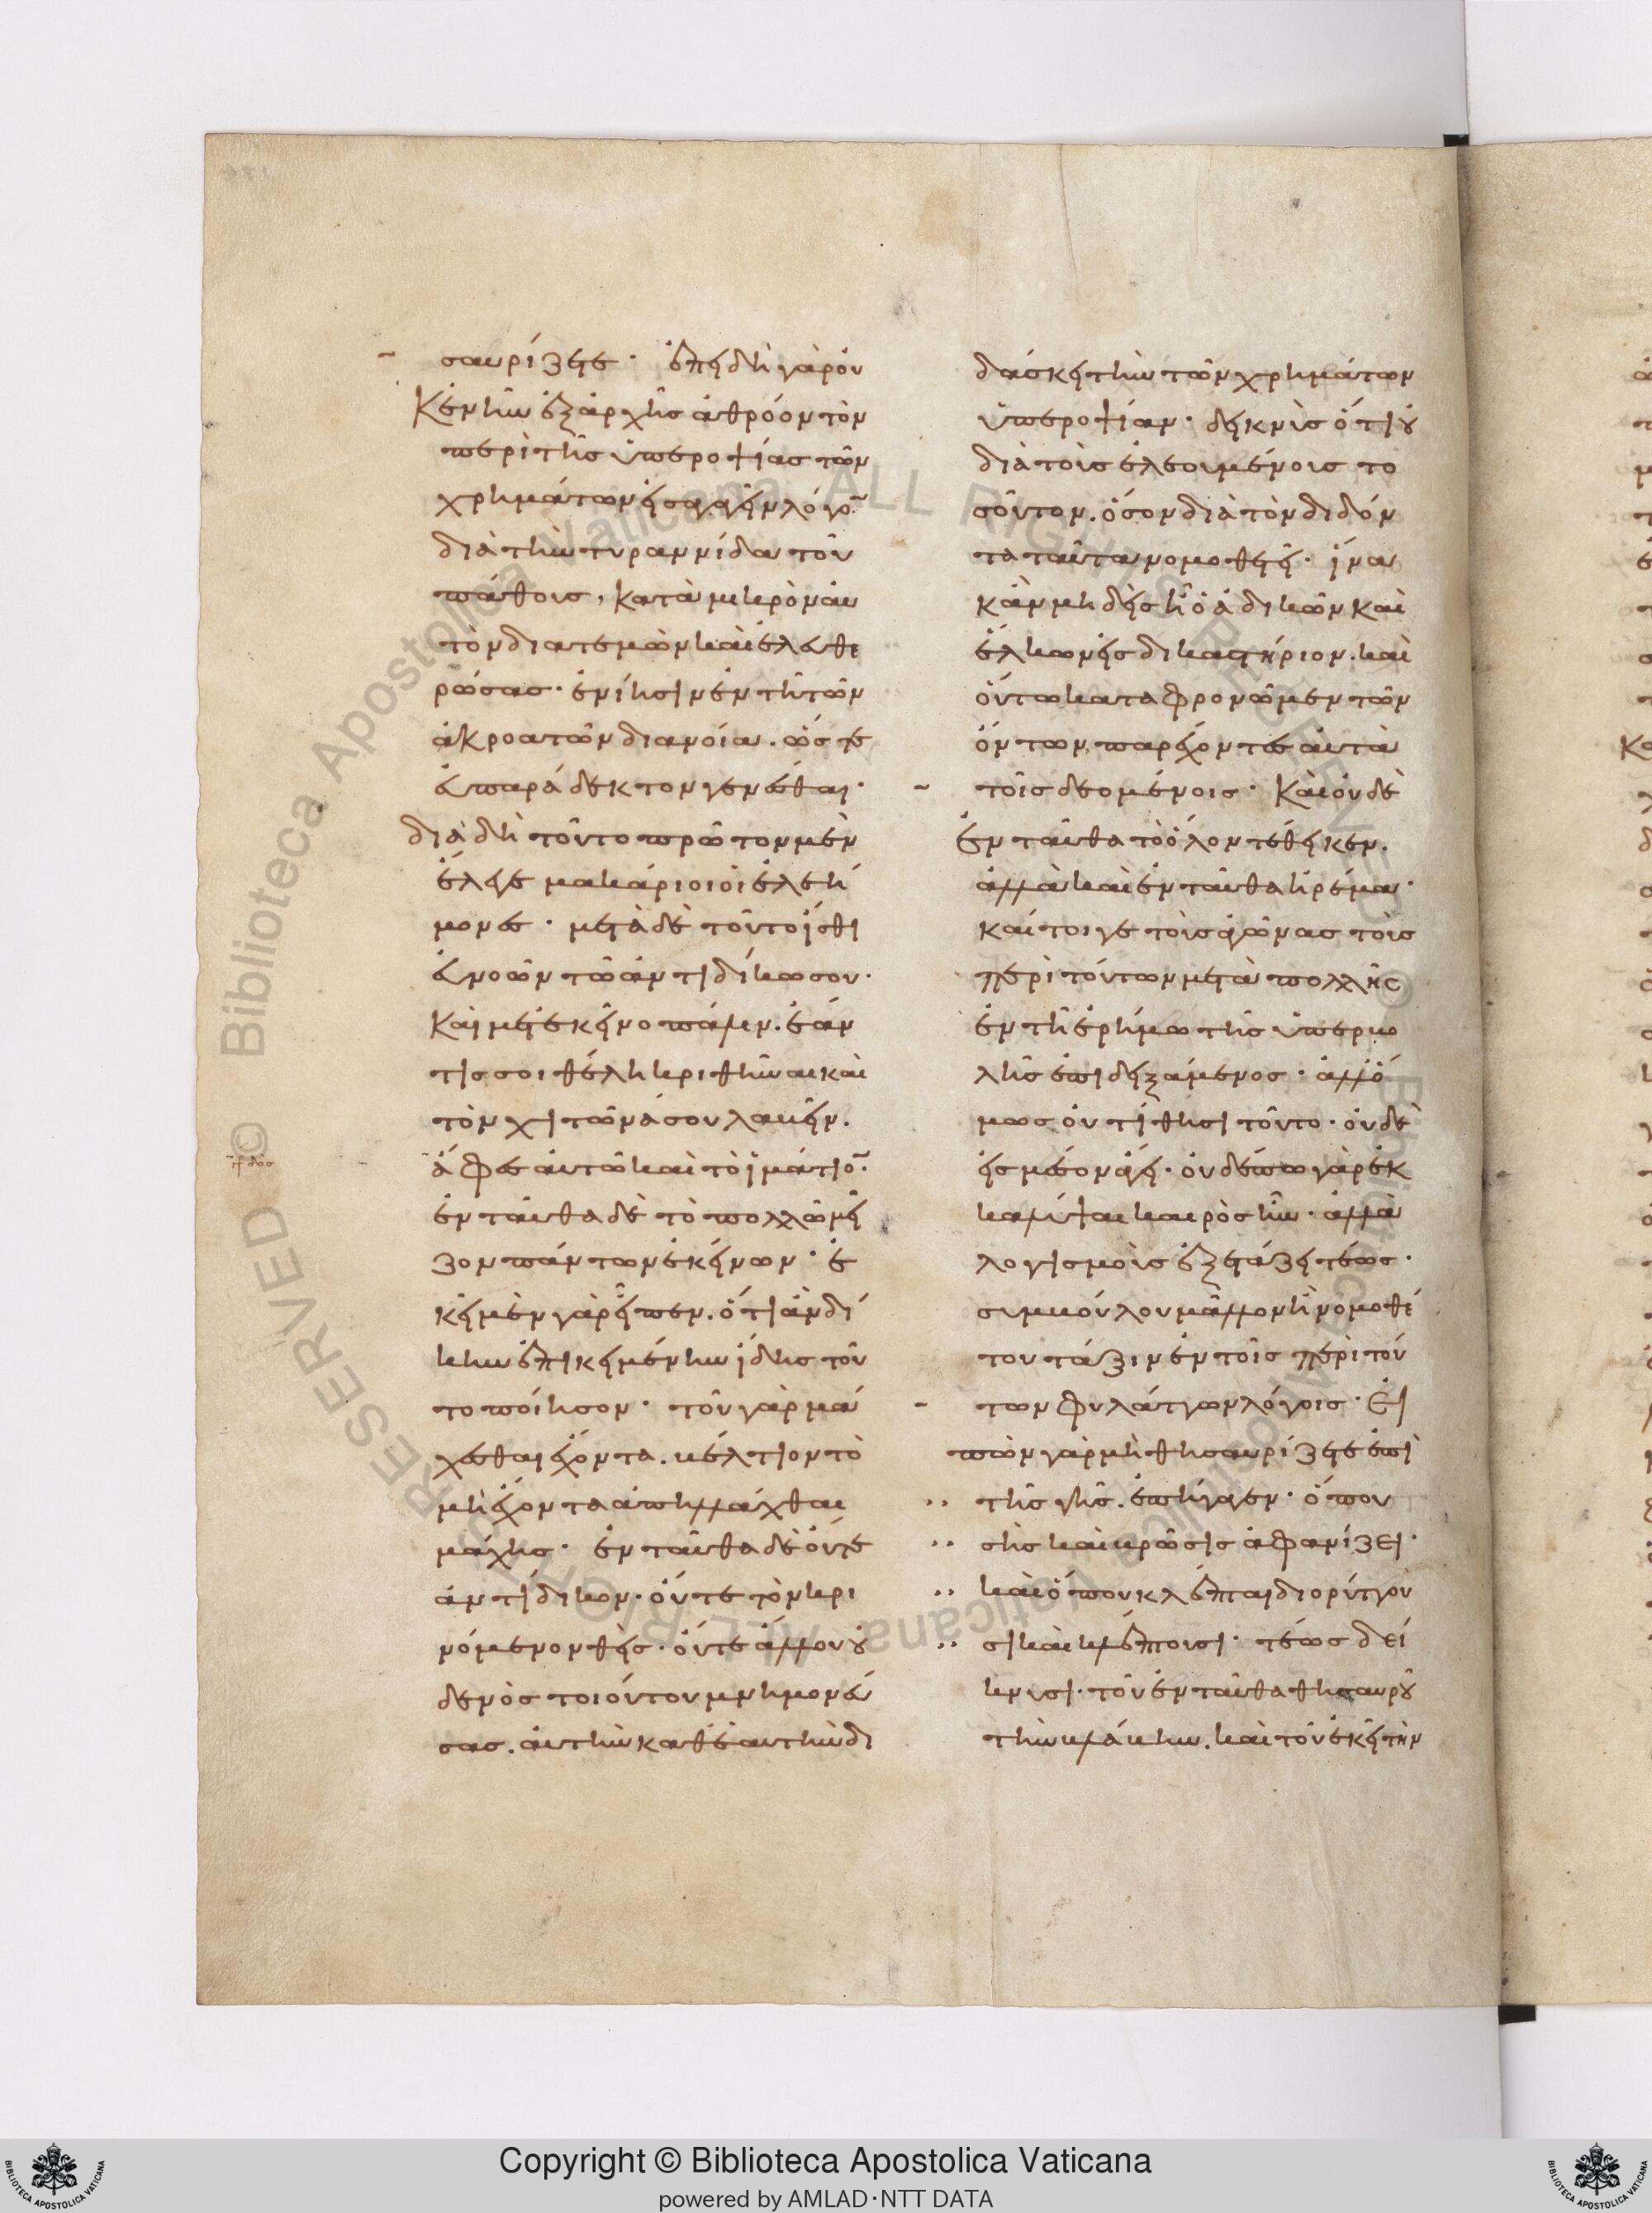 σαυρίζετε· ἐπειδὴ γὰρ οὐ
κ ἐνῆν ἐξ ἀρχῆς ἀθρόον τὸν
περὶ τῆς ὑπεροψίας τῶν
χρημάτων εἰσαγαγεῖν λόγο̅·
διὰ τὴν τυραννίδα τοῦ
πάθους, κατὰ μικρὸν αὐ
τὸν διατεμὼν καὶ ἐλευθε
ρώσας· ἐνίησιν ἐν τῆ τῶν
ἀκροατῶν διανοία. ὥστε
εὐπαράδεκτον γενέσθαι·
διὰ δὴ τοῦτο πρῶτον μὲν
ἔλεγε μακάριοι οἱ ἐλεή
μονες· μετὰ δὲ τοῦτο ἴσθι
εὐνοῶν τῶ ἀντιδίκω σου·
καὶ μετ ἐκεῖνο πάλιν. ἐάν
τίς σοι θέλη κριθῆναι καὶ
τὸν χιτῶνά σου λαβεῖν.
ἄφες αὐτῶ καὶ τὸ ἱμάτιο̅·
ἐνταῦθα δὲ τὸ πολλῶ μεῖ
ζον πάντων ἐκείνων· ἐ
κεῖ μὲν γὰρ εἶπεν. ὅτι ἂν δί
κην ἐπικειμένην ἴδης τοῦ
το ποίησον· τοῦ γὰρ μά
χεσθαι ἔχοντα. βέλτιον τὸ
μὴ ἔχοντα ἀπηλλάχθαι
μάχης· ἐνταῦθα δὲ οὔτε
ἀντίδικον· οὔτε τὸν κρι
νόμενον θεὶς· οὔτε ἄλλου οὐ
δενὸς τοιούτου μνημονεύ
σας. αὐτὴν καθ ἑαυτὴν δι
δάσκει τὴν τῶν χρημάτων
ὑπεροψίαν· δεικνὺς ὅτι οὐ
διὰ τοὺς ἐλεουμένους το
σοῦτον. ὅσον διὰ τὸν διδόν
τα ταῦτα νομοθετεῖ· ἵνα
κἂν μηδεὶς ἦ ὁ ἀδικῶν καὶ
ἕλκων εἰς δικαστήριον. καὶ
οὕτω καταφρονῶμεν τῶν
ὄντων, παρέχοντες αὐτὰ
τοῖς δεομένοις· Καὶ οὐδὲ
ἐνταῦθα τὸ ὅλον τέθεικεν.
ἀλλὰ καὶ ἐνταῦθα ἠρέμα·
καίτοιγε τοὺς ἀγῶνας τοὺς
περὶ τούτων μετὰ πολλῆς
ἐν τῆ ἐρήμω τῆς ὑπερβο
λῆς ἐπιδειξάμενος· ἀλλ ὅ
μως οὐ τίθησι τοῦτο· οὐδὲ
εἰς μέσον ἄγει· οὐδέπω γὰρ ἐκ
καλύψαι καιρὸς ἦν· ἀλλὰ
λογισμοὺς ἐξετάζει τέως·
συμβούλου μᾶλλον ἢ νομοθέ
του τάξιν ἐν τοῖς περὶ τού
των φυλάττων λόγοις· Εἰ
πὼν γὰρ μὴ θησαυρίζετε ἐπὶ
τῆς γῆς. ἐπήγαγεν· ὅπου
σὴς καὶ βρῶσις ἀφανίζει·
καὶ ὅπου κλέπται διορύττου
σι καὶ κλέπτουσι· τέως δεί
κνυσι· τοῦ ἐνταῦθα θησαυροῦ
τὴν βλάβην. καὶ τοῦ ἐκεῖ τὴν
Copyright © Biblioteca Apostolica Vaticana
powered by AMLAD·NTT DATA